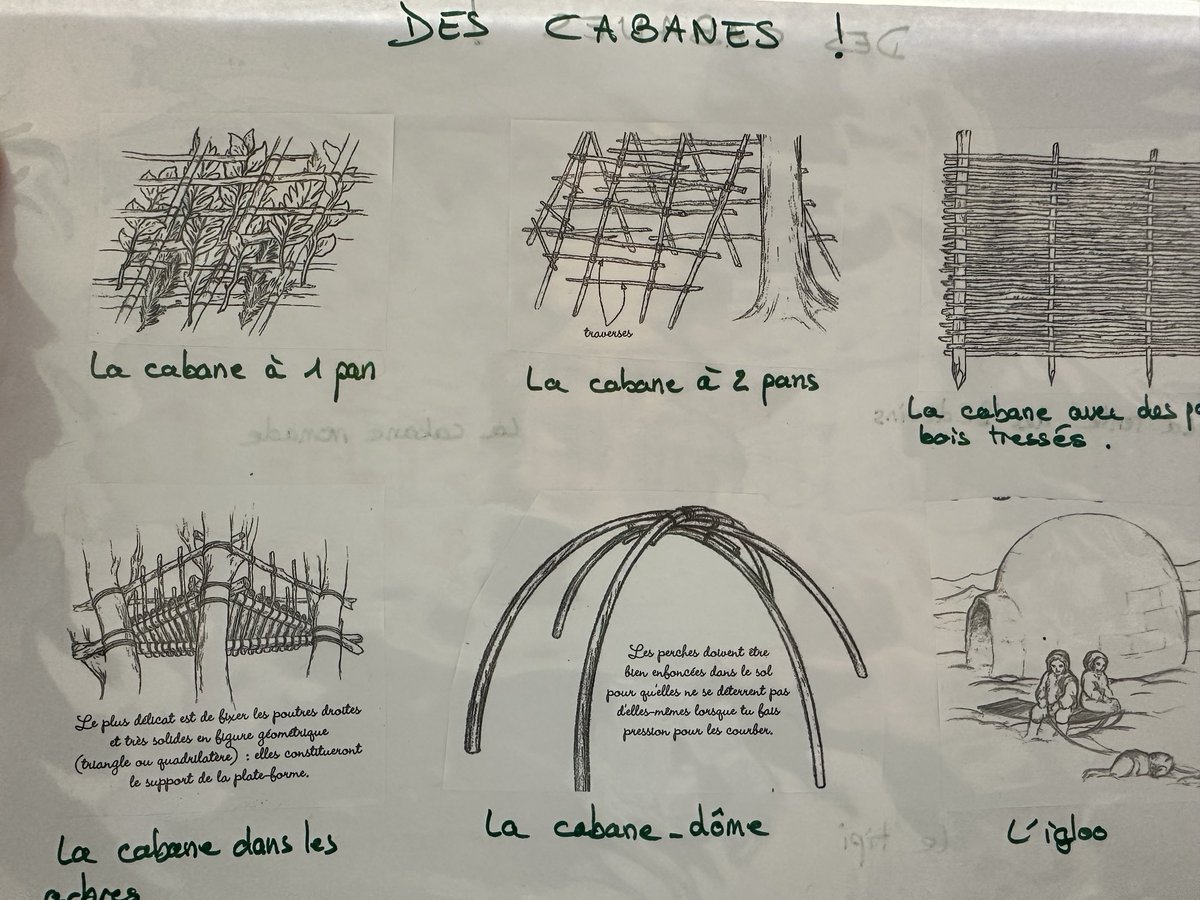 DES CABANES !
traverses
La cabane à 1 pan
La cabane à 2 pans
La cabane avec des
bois tressés.
Le plus délicat est de fixer les poutres droites
et très solides en figure géométrique
(triangle ou quadrilatère) : elles constitueront
le support de la plate-forme.
Les perches doivent être
bien enfoncées dans le sol
pour qu'elles ne se déterrent pas
d'elles-mêmes lorsque tu fais
pression pour les courber.
La cabane dans les
arbres
La cabane-dôme
L'igloo